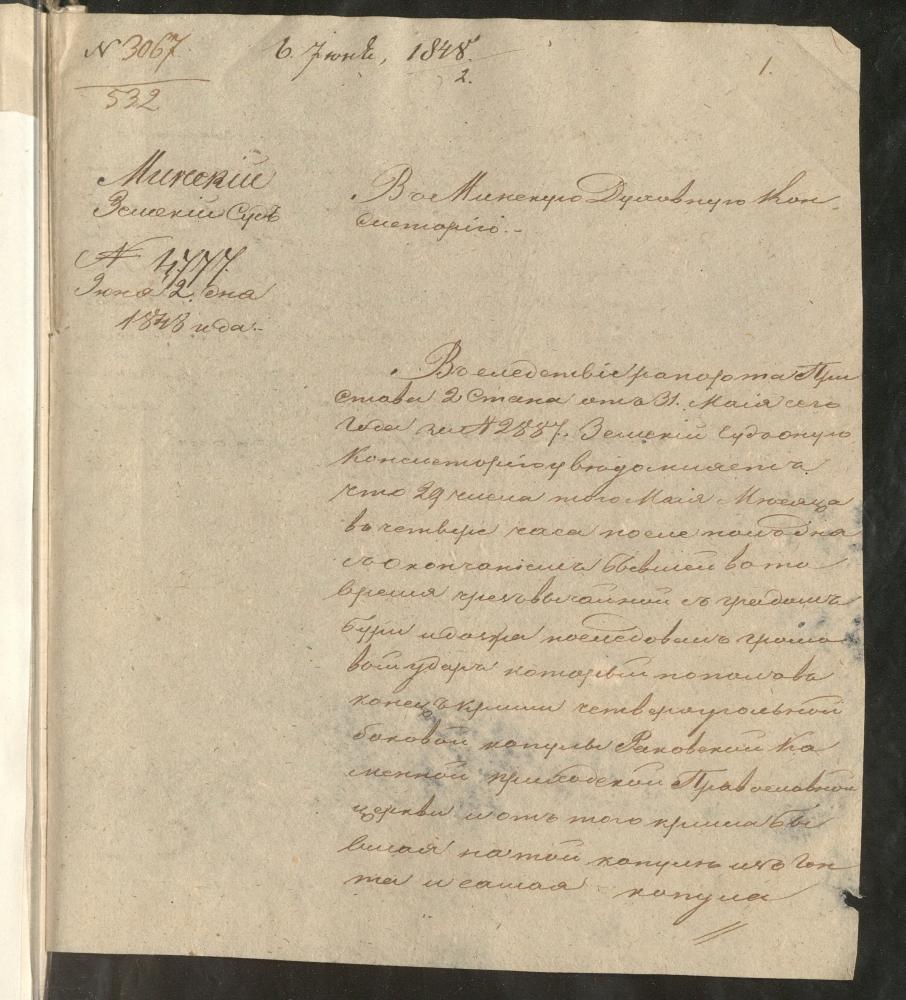 N 3067.
532
6. Іюня, 1848.
2.
1.
Минскій
Земскій Судъ
N 4777.
Іюня 2. дня
1848 года.
Въ Минскую Духовную Кон-
систорію.-
Въ следствіе рапорта При
става 2 Стана отъ 31. Маія сего
года за N 2887. Земскій Судъ оную
Консисторію увѣдомляетъ
что 29 числа того Маія Мѣсяца
въ четверт часа после полъ дня
съ окончаніемъ бывшей во то
время чрезвычайной съ градомъ
бури и дождя последовалъ громо
вой ударъ который попалъ въ
конецъ крыши четвероугольной
боковой копулы Раковской Ка
менной приходской Православной
церкви и отъ того крыша бы
вшая на той копулѣ из гон
та и самая копула